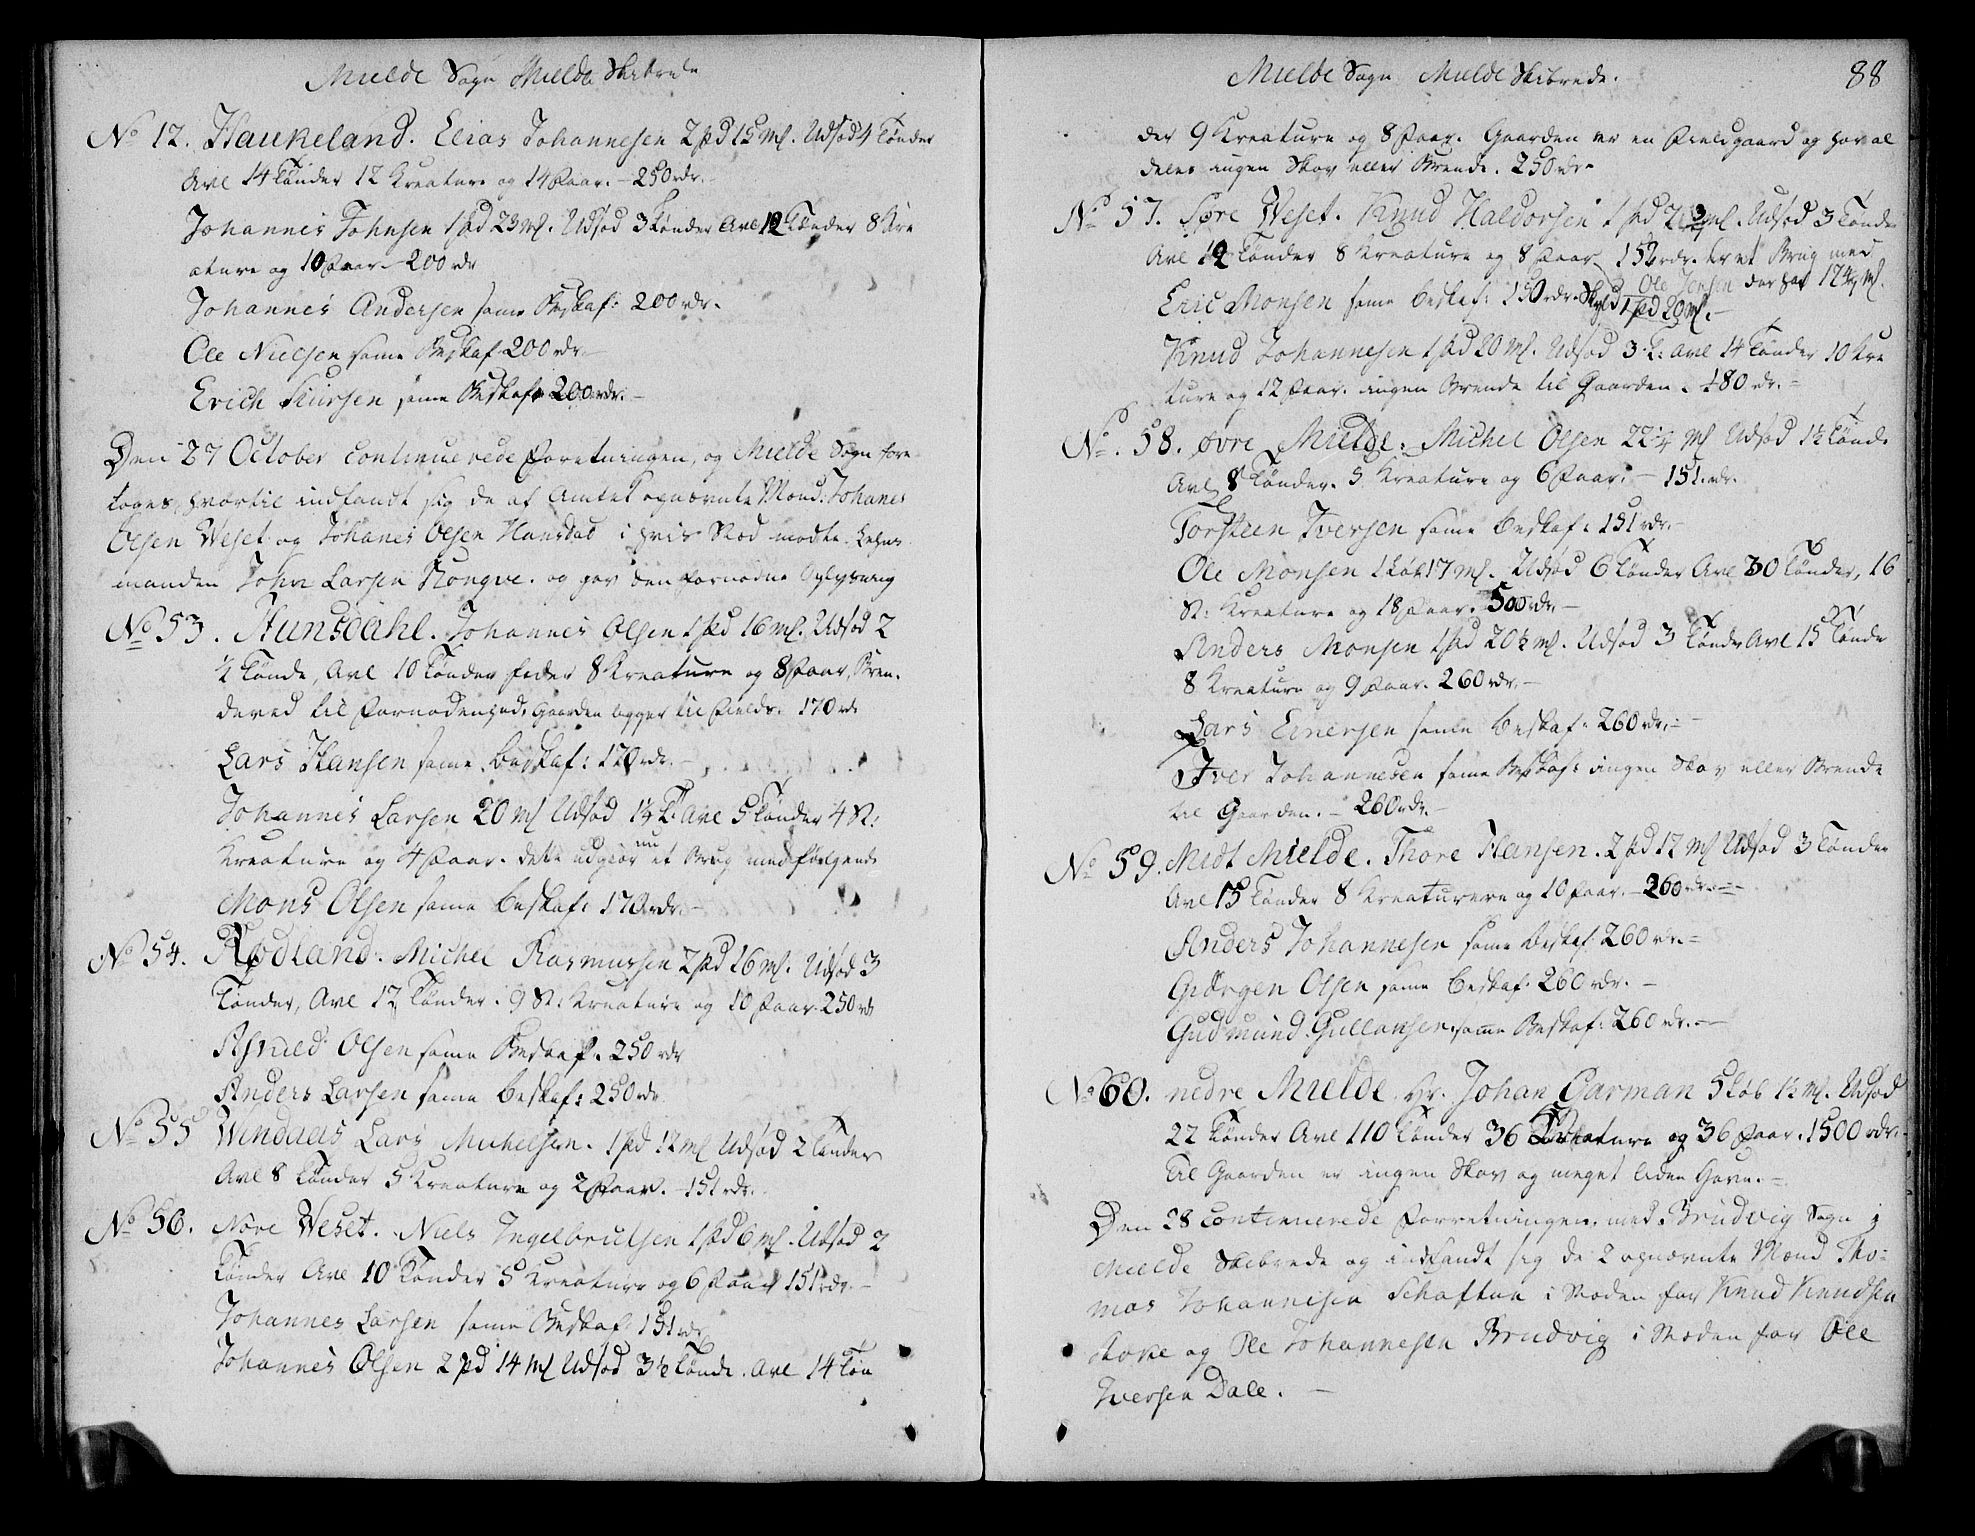 Mielde Sogn Mielde Skibrede
No 12. Haukeland. Elias Johannesen 2 pd 15 ml. Udsød 4 Tønder
Avl 14 Tønder 12 Kreature og 14 Faar. - 250 rdr.
Johannes Johnsen 1 pd 23 ml. Udsød 3 Tønder Avl 12 Tønder 8 Kre
ature og 10 Faar - 200 rdr
Johannes Andersen same Beskaf: 200 rdr.
Ole Nielsen same Beskaf 200 rdr -
Erich Siursen same Beskaf: 200 rdr. -
Den 27 October continuerede Forretningen, og Mielde Sogn fore
toges, hvortil indfandt sig de af Amtet opnævnte Mænd: Johanes
Olsen Weset og Johanes Olsen Hunsdal i hvis Sted mødte Lehns
manden John Larsen Rongve. og gav den fornødne Oplysning
No 53. Hunsdahl. Johannes Olsen 1 pd 16 ml. Udsød 2
½ Tønde, Avl 10 Tønder feder 8 Kreature og 8 Faar, Bren-
deved til Fornødenhed. Gaarden ligger til Fields. 170 rdr
Lars Hansen same beskaf: 170 rdr. -
Johannes Larsen 20 ml Udsød 1½ T: Avl 5 Tønder 4 St:
Kreature og 4 Faar. dette udgiør nu et Brug med følgende
Mons Olsen same beskaf: 170 rdr. -
No 54. Rødland. Michel Rasmussen 2 pd 16 ml. Udsød 3
Tønder, Avl 12 Tønder. 9 St: Kreature og 10 Faar. 250 rdr
Asmild Olsen same Beskaf. 250 rdr
Anders Larsen same beskaf: 250 rdr
No 55 Wendaas Lars Michelsen. 1 pd 12 ml Udsød 2 Tønder
Avl 8 Tønder 5 Kreature og 2 Faar. - 151 rdr.
No 56. Nore Weset. Niels Ingelbricktsen 1 pd 6 ml. Udsød 2
Tønder Avl 10 Tønder 5 Kreature og 6 Faar 151 rdr. -
Johannes Larsen same Beskaf 151 rdr
Johannes Olsen 2 pd 14 ml Udsød 3½ Tønde. Avl 14 Tøn
Mielde Sogn Mielde Skibrede.
88
der 9 Kreature og 8 Faar. Gaarden er en Fieldgaard og har al
deles ingen Skov eller Brende. 250 rdr
No 57. Søre Weset. Knud Haldorsen 1 pd ml. Udsød 3 Tønder
Avl 12 Tønder 8 Kreature og 8 Faar 150 rdr. er et Brug med
Ole Jensen der har 12¾ ml.
Eric Monsen same beskaf: 150 rdr. Skyld 1 pd 20 ml. -
Knud Johannesen 1 pd 20 ml. Udsød 3 T: Avl 14 Tønder 10 Kre
ture og 12 Faar. ingen Brende til Gaarden. 180 rdr. -
No. 58. øvre Mielde. Michel Olsen 22½ ml Udsød 1½ Tønde
Avl 8 Tønder. 5 Kreature og 6 Faar. - 151 rdr.
Torsteen Iversen same beskaf: 151 rdr. -
Ole Monsen 1 Løb 17 ml. Udsød 6 Tønder Avl 30 Tønder, 16
St: Kreature og 18 Faar. 500 rdr -
Anders Monsen 1 pd 20½ ml. Udsød 3 Tønder Avl 15 Tønde
8 Kreature og 9 Faar. 260 rdr. -
Lars Einersen same beskaf: 260 rdr. -
Iver Johannesen same Beskaf: ingen Skov eller Brende
til Gaarden. - 260 rdr. -
No 59. Midt Mielde. Thore Hansen. 2 pd 12 ml Udsød 3 Tønder
Avl 15 Tønder 8 Kreaturere og 10 Faar. - 260 rdr. -
Anders Johannesen same beskaf. 260 rdr. -
Giørgen Olsen same beskaf. 260 rdr. -
Gudmund Gullansen same Beskaf: 260 rdr. -
No 60. nedre Mielde. Hr. Johan Garman 5 Løb 1½ ml. Udsød
22 Tønder Avl 110 Tønder 36 Kreature og 36 Faar. 1500 rdr.
Til Gaarden er ingen Skov og meget liden Havn. -
Den 28 continuerede Forretningen, med Brudvig Sogn i
Mielde Skibrede og indfandt sig de 2 opnævnte Mænd Tho-
mas Johannesen Schaftun i Steden for Knud Knudsen
Stoke og Ole Johannesen Brudvig i Steden for Ole
Iversen Dale. -